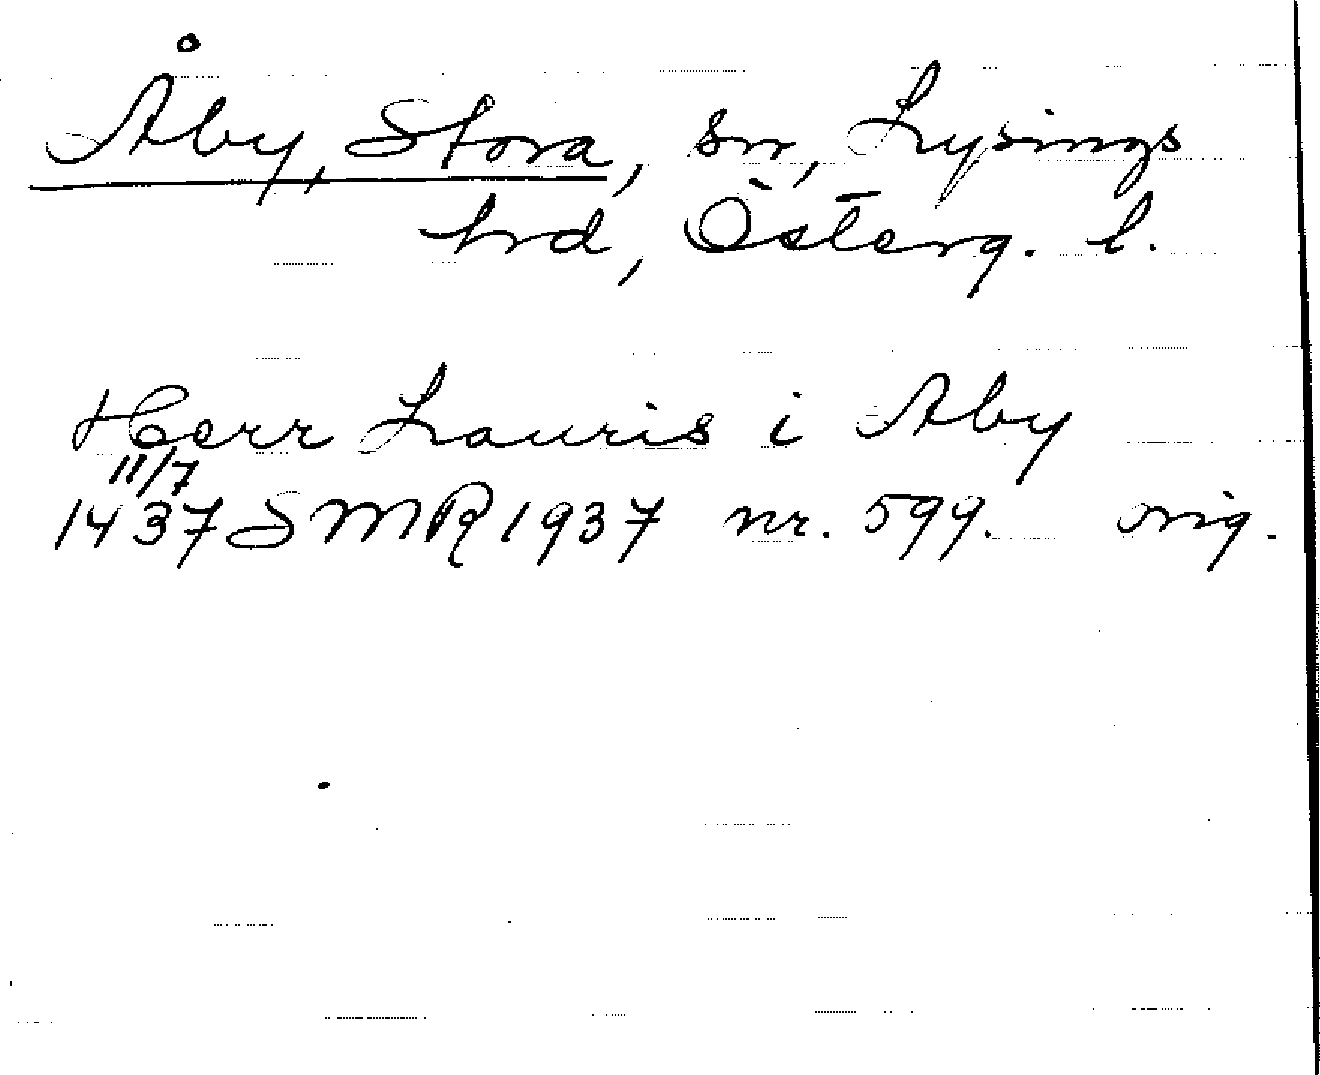 Åby, Stora, sn, Lysings
hrd, Österg. l.
Herr Lauris i Aby
11/7
1437 SMR 1937 nr. 599. orig.